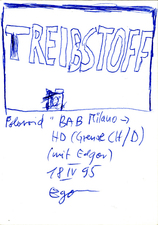 TREIBSTOFF
Polaroid "BAB Milano →
HD (Grenze CH/D)
(mit Edgar)
18 IV 95